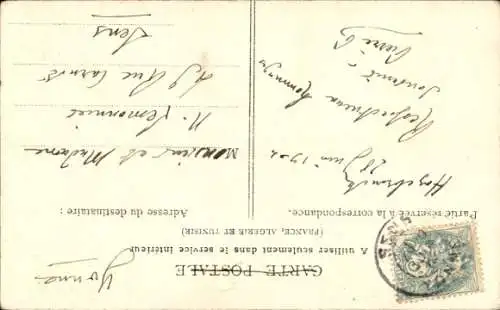 CARTE POSTALE
A utiliser seulement dans le service intérieur
(FRANCE, ALGÉRIE ET TUNISIE)
Partie réservée à la correspondance.
Adresse du destinataire :
Hazebrouck
28 Juin
Respectueux hommages
Souvenir
Monsieur et Madame
H. Lemonnier
Rue Carnot
Sens
Yonne
SENS